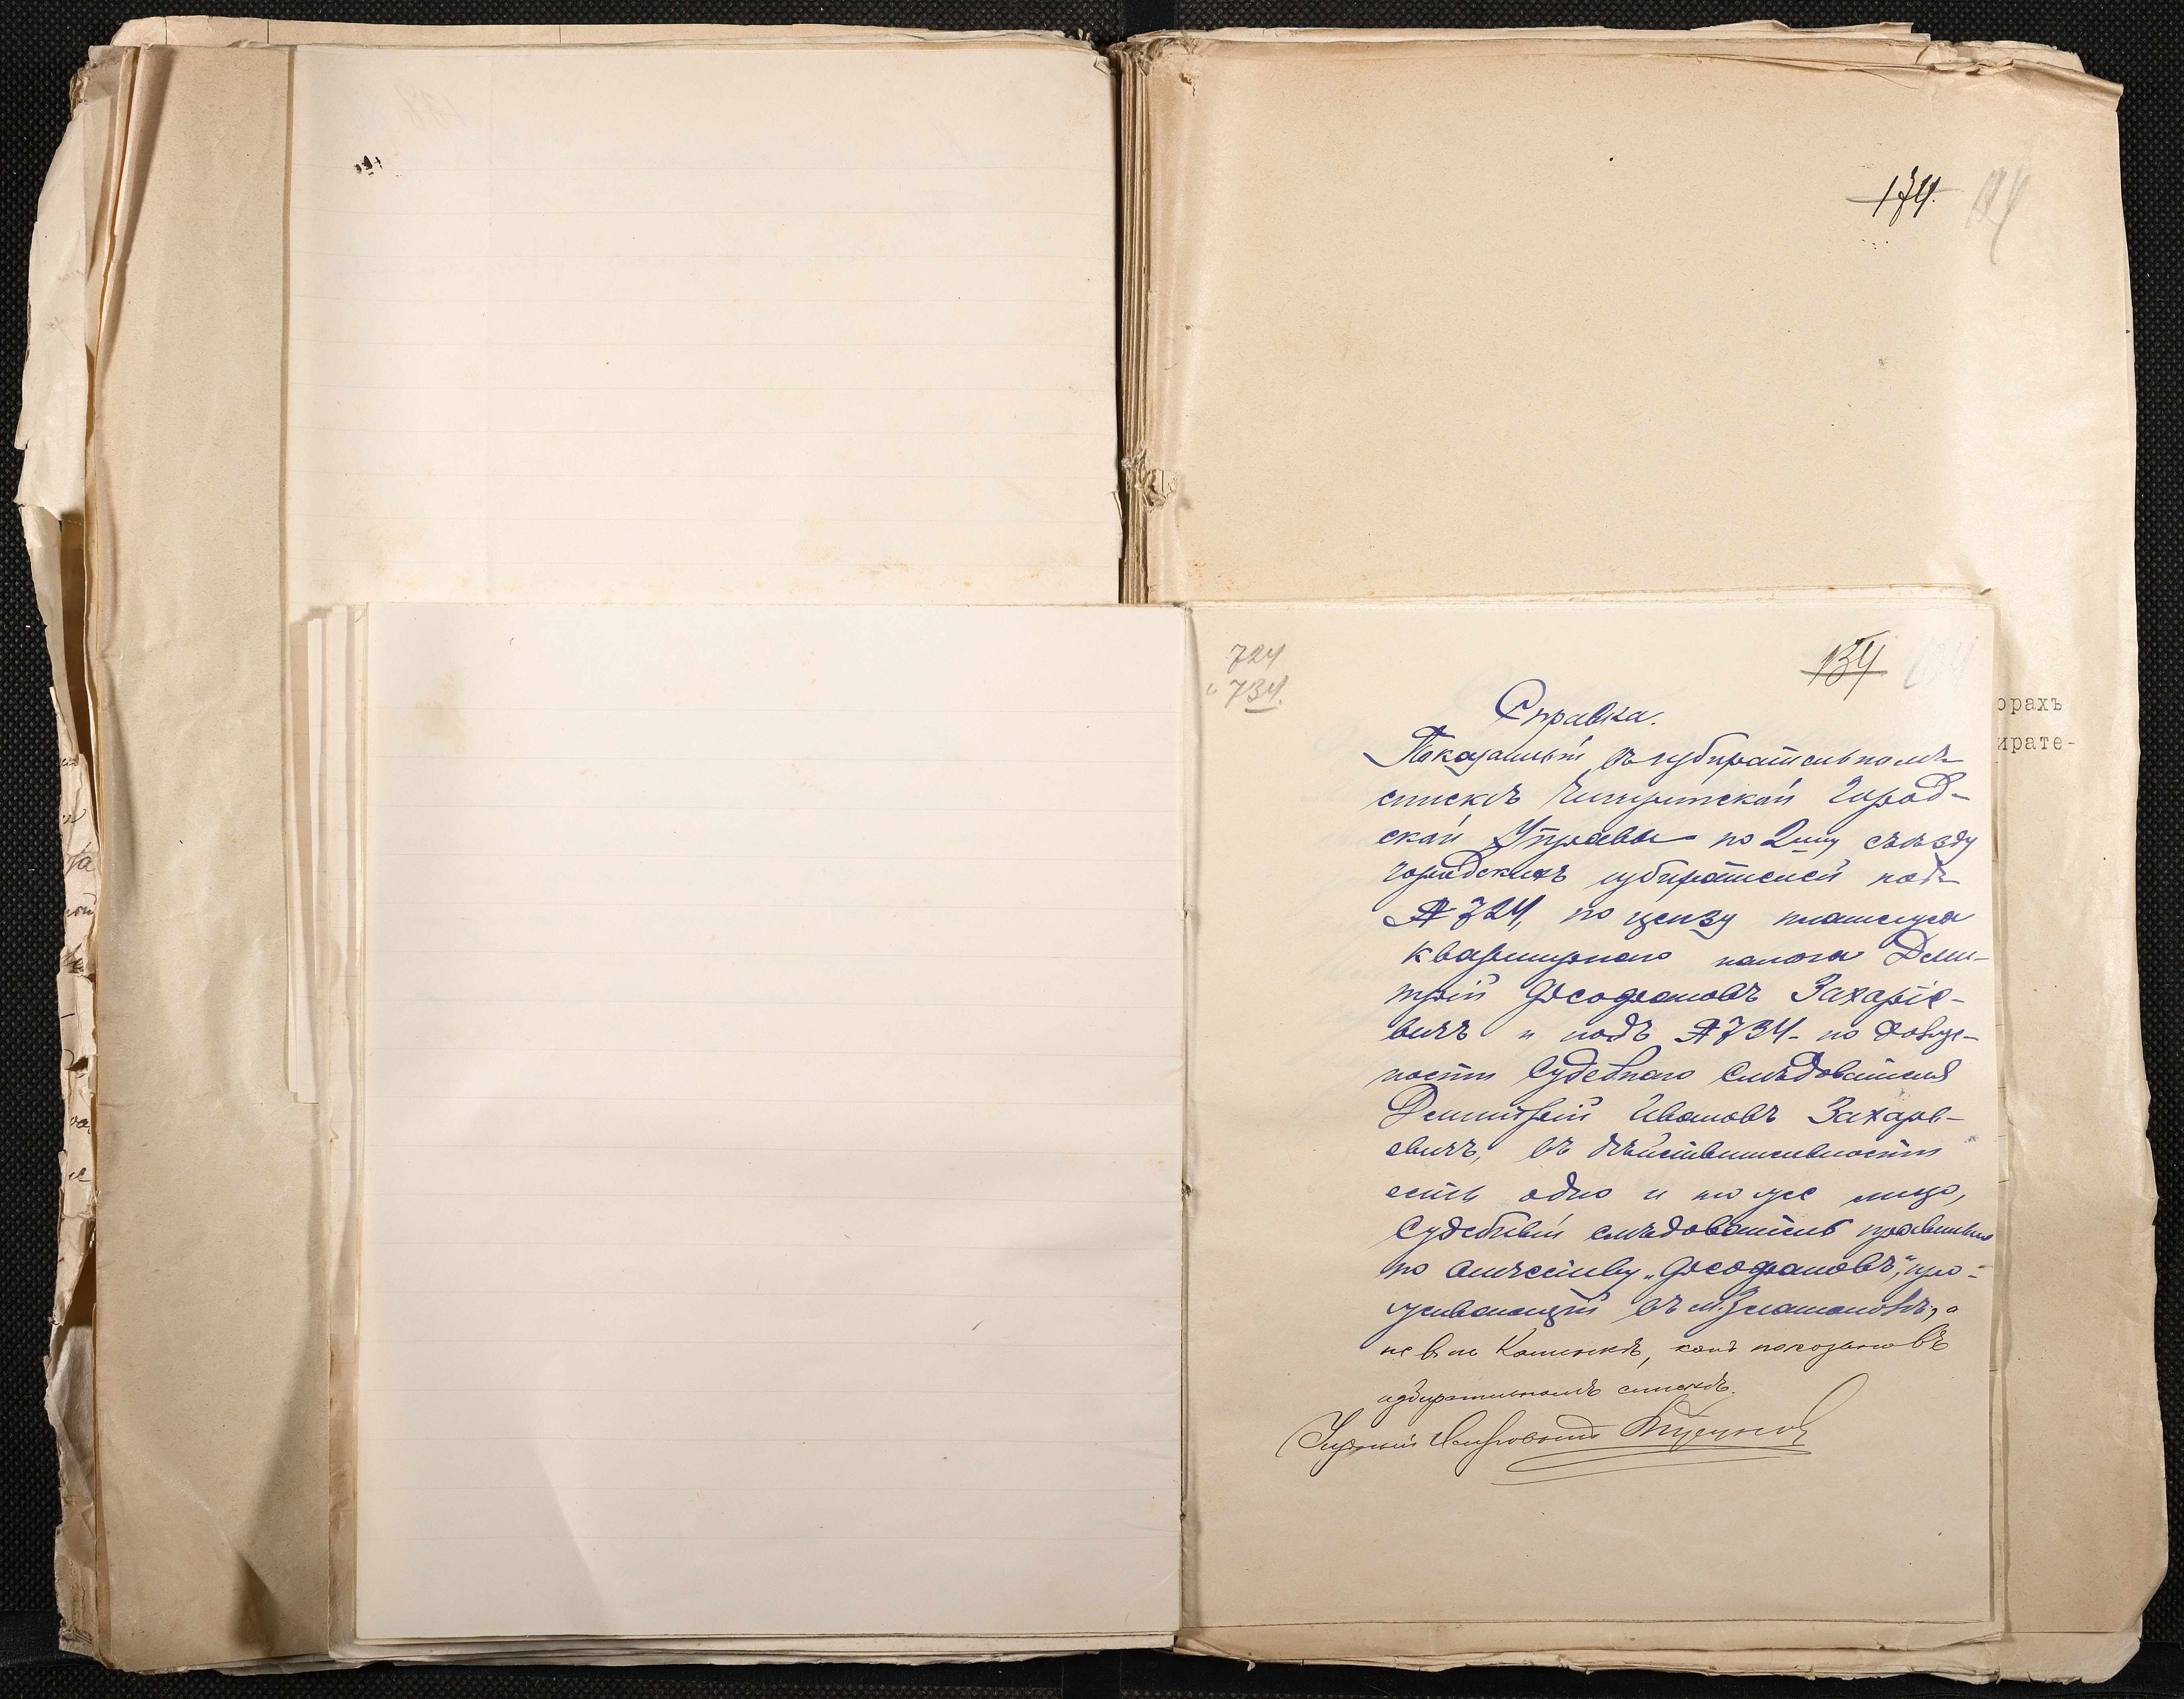 174.
724
и 734.
134
Справка.
Показанный въ избирательномъ
спискѣ Чигиринской Город-
ской Управы по 2му съѣзду
городскихъ избирателей подъ
№ 724, по цензу платежа
квартирнаго налога Дми-
трій Феофановъ Захаріе-
вичъ и подъ № 734 - по должно-
ности Судебнаго Слѣдователя
Дмитрій Ивановъ Захарь-
евичъ, въ дѣйствительности
есть одно и то же лицо,
Судебный слѣдователь правильно
по отчеству „Феофановъ", про-
живающій въ м. Златополѣ, а
не въ м. Каменкѣ, какъ показано въ
избирательномъ спискѣ.
орахъ
ирате-